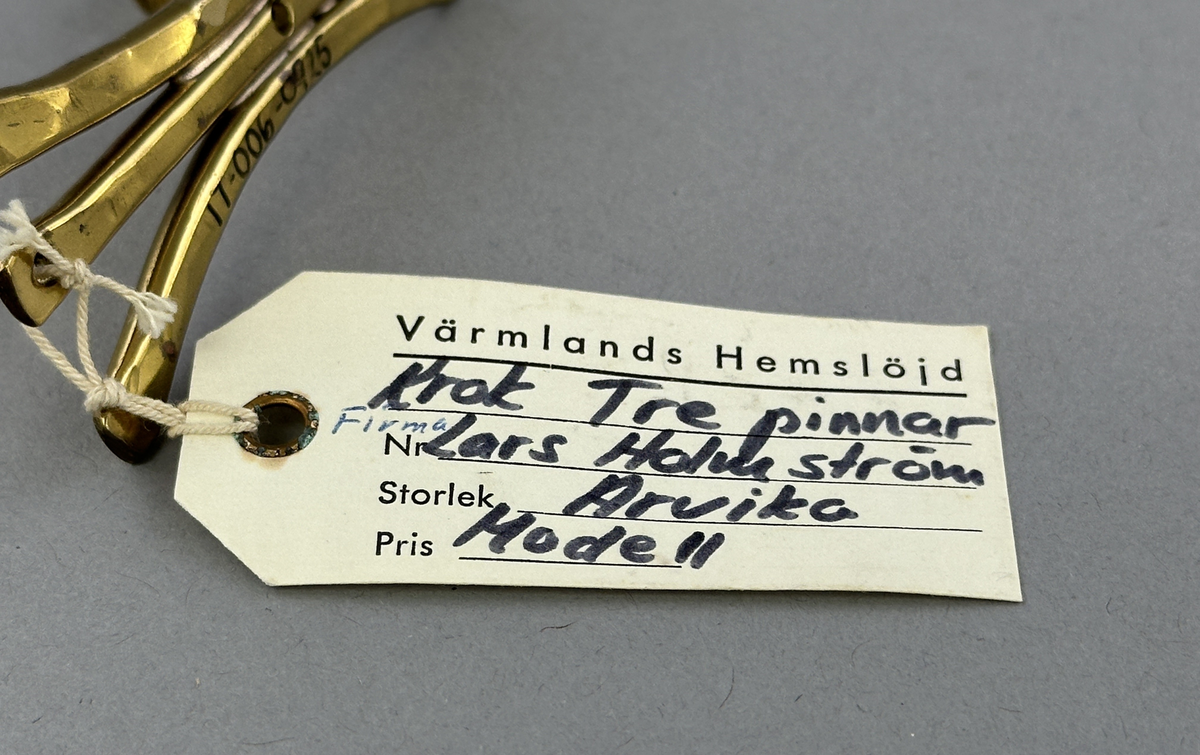 17-006-0925
Värmlands Hemslöjd
Krok Tre pinnar
Firma
Nr Lars Holmström
Storlek Arvika
Pris Modell